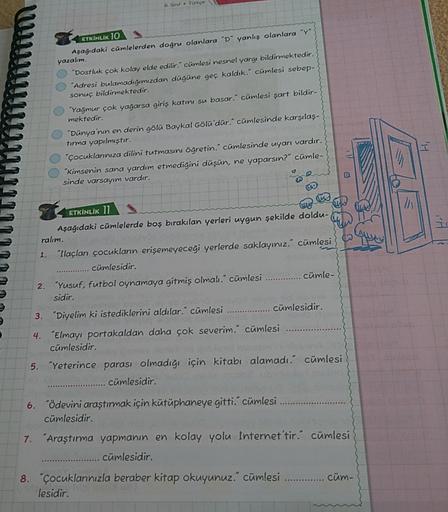 6. Sınıf • Türkçe
ETKİNLİK 10
Aşağıdaki cümlelerden doğru olanlara "D" yanlış olanlara "Y"
yazalım.
"Dostluk çok kolay elde edilir." cümlesi nesnel yargı bildirmektedir.
"Adresi bulamadığımızdan düğüne geç kaldık." cümlesi sebep-
sonuç bildirmektedir.
"Yağmur çok yağarsa giriş katını su basar." cümlesi şart bildir-
mektedir.
"Dünya'nın en derin gölü Baykal Gölü'dür." cümlesinde karşılaş-
tırma yapılmıştır.
"Çocuklarınıza dilini tutmasını öğretin." cümlesinde uyarı vardır.
"Kimsenin sana yardım etmediğini düşün, ne yaparsın?" cümle-
sinde varsayım vardır.
ETKİNLİK 11
Aşağıdaki cümlelerde boş bırakılan yerleri uygun şekilde doldu-
ralım.
1. "İlaçları çocukların erişemeyeceği yerlerde saklayınız." cümlesi
............. cümlesidir.
2. "Yusuf, futbol oynamaya gitmiş olmalı." cümlesi ............. cümle-
sidir.
3. "Diyelim ki istediklerini aldılar." cümlesi ................ cümlesidir.
4. "Elmayı portakaldan daha çok severim." cümlesi ....................
cümlesidir.
5. "Yeterince parası olmadığı için kitabı alamadı." cümlesi
..................... cümlesidir.
6. "Ödevini araştırmak için kütüphaneye gitti." cümlesi .......................
cümlesidir.
7. "Araştırma yapmanın en kolay yolu İnternet'tir." cümlesi
..................... cümlesidir.
8. "Çocuklarınızla beraber kitap okuyunuz." cümlesi .............. cüm-
lesidir.